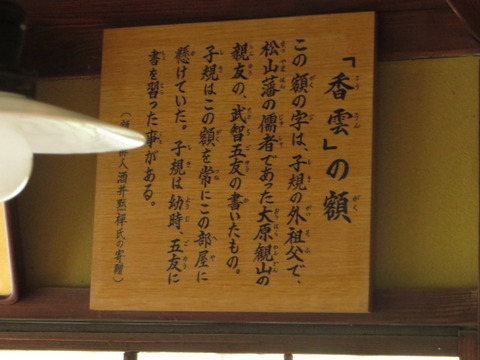 「香雲」の額
この額の字は、子規の外祖父で、
松山藩の儒者であった大原観山の
親友の、武智五友の書いたもの。
子規はこの額を常にこの部屋に
懸けていた。子規は幼時、五友に
書を習った事がある。
人酒井黙禅氏の寄贈)